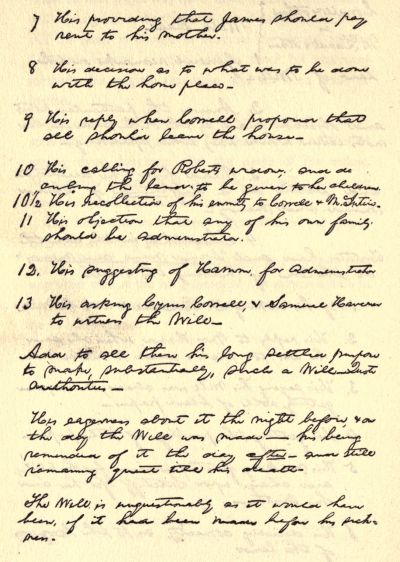 7 His providing that James should pay
rent to his mother.
8 His decision as to what was to be done
with the home place—
9 His reply when Correll proposed that
all should leave the house—
10 His calling for Roberts widow, and de
the land, to be given to her children
10½ His recollection of his enmity to Correll &
11 His objection that any of his own family
should be administrator.
12. His suggesting of Hamon, for Administrator
13 His asking Cyrus Correll, & Samuel
to witness the Will—
Add to all these his long settled purpose
to make, substantially, such a Will—
authorities—
His eagerness about it the night before, & on
the day the Will was made — his being
reminded of it the day after— and still
remaining quiet till his death—
The Will is unquestionably as it would have
been, if it had been made before his sick-
ness.